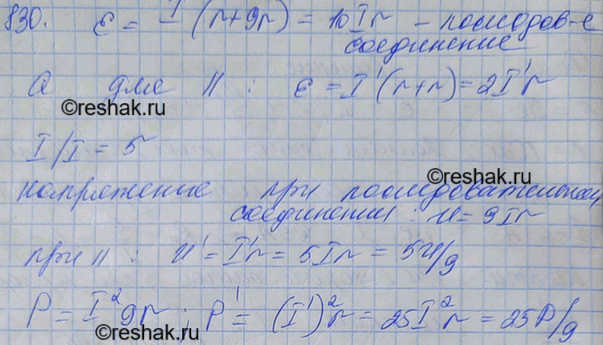 830. ε = I (r+9r) = 10Ir – последов-е
соединение
А для II : ε = I'(r+r) = 2I'r
©reshak.ru
©reshak.ru
I/I = 5
©reshak.ru
напряжение при последовательном
соединении : U = 9Ir
при II : U' = I'r = 5Ir = 5U/9
P = I²9r ; P' = (I')²r = 25I²r = 25P/9
©reshak.ru
©reshak.ru